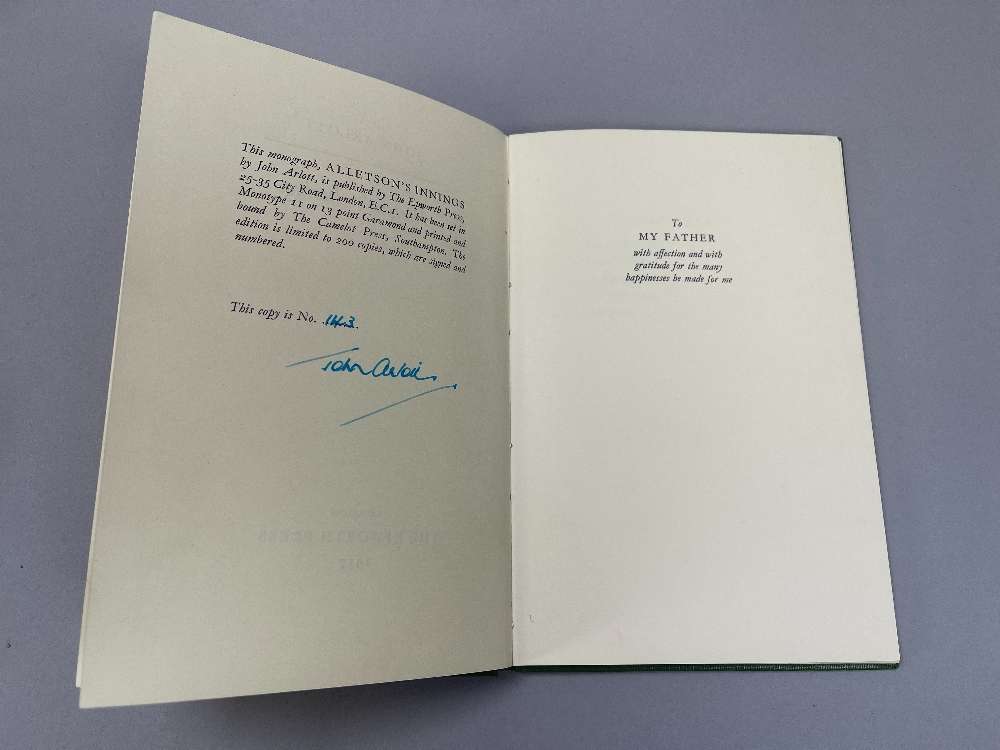 This monograph, ALLETSON'S INNINGS
by John Arlott, is published by The Epworth Press,
25-35 City Road, London, E.C.1. It has been set in
Monotype 11 on 13 point Garamond and printed and
bound by The Camelot Press, Southampton. The
edition is limited to 200 copies, which are signed and
numbered.
This copy is No. 143.
John Arlott
To
MY FATHER
with affection and with
gratitude for the many
happinesses he made for me